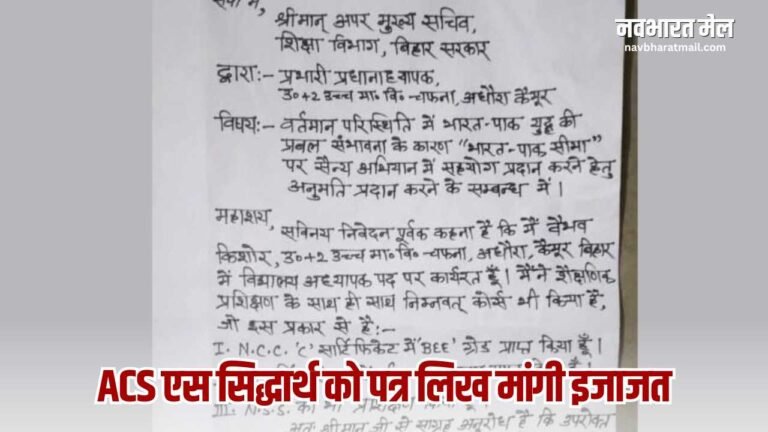 नवभारत मेल
navbharatmail.com
सेवा में,
श्रीमान् अपर मुख्य सचिव,
शिक्षा विभाग, बिहार सरकार
द्वारा:- प्रभारी प्रधानाध्यापक,
उ०+2 उच्च मा० वि०-चफना, अधौरा कैमूर
विषय:- वर्तमान परिस्थिति में भारत-पाक युद्ध की
प्रबल संभावना के कारण "भारत-पाक सीमा"
पर सैन्य अभियान में सहयोग प्रदान करने हेतु
अनुमति प्रदान करने के सम्बन्ध में।
महाशय,
सविनय निवेदन पूर्वक कहना है कि मैं वैभव
किशोर, उ०+2 उच्च मा० वि०-चफना, अधौरा, कैमूर बिहार
में विद्यालय अध्यापक पद पर कार्यरत हूँ। मैंने शैक्षणिक
प्रशिक्षण के साथ ही साथ निम्नवत् कोर्स भी किया है,
जो इस प्रकार से है:-
I. N.C.C. 'C' सार्टिफिकेट में 'BEE' ग्रेड प्राप्त किया हूँ।
ACS एस सिद्धार्थ को पत्र लिख मांगी इजाजत
III. N.S.S. का भी प्रशिक्षण
अतः श्रीमान् जी से साग्रह अनुरोध है कि उपरोक्त